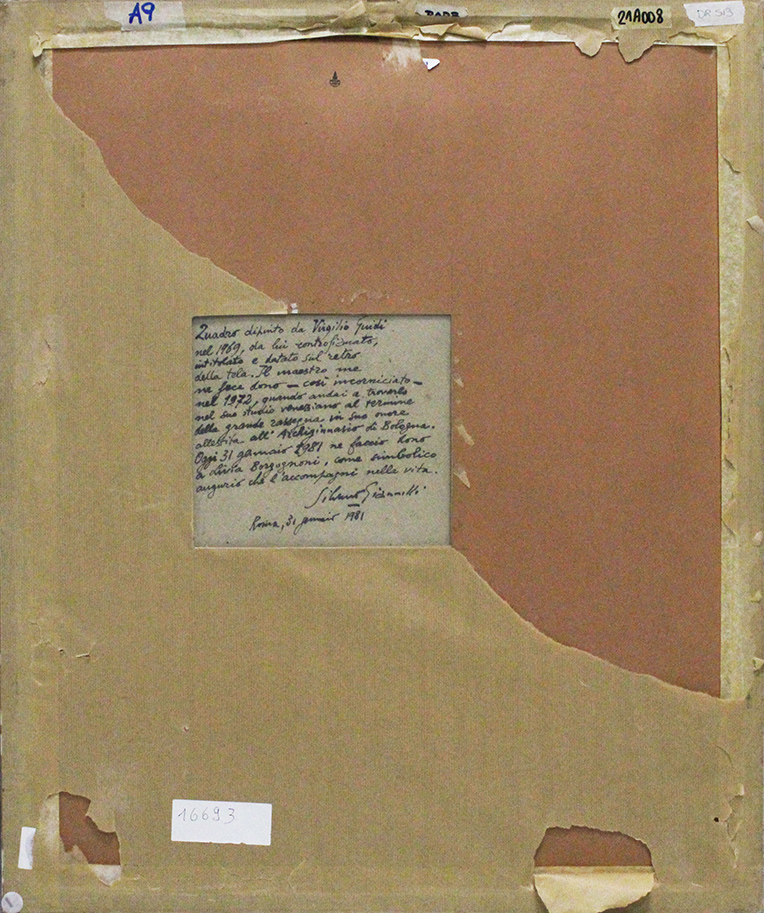 A9
21A008
DR 513
Quadro dipinto da Virgilio Guidi
nel 1969, da lui controfirmato,
intitolato e datato sul retro
della tela. Il maestro me
ne fece dono — così incorniciato —
nel 1972, quando andai a trovarlo
nel suo studio veneziano al termine
della grande rassegna in suo onore
allestita all' Archiginnasio di Bologna.
Oggi 31 gennaio 1981 ne faccio dono
a Luisa Borgognoni, come simbolico
augurio che l'accompagni nelle vita.
Roma, 31 gennaio 1981
16693